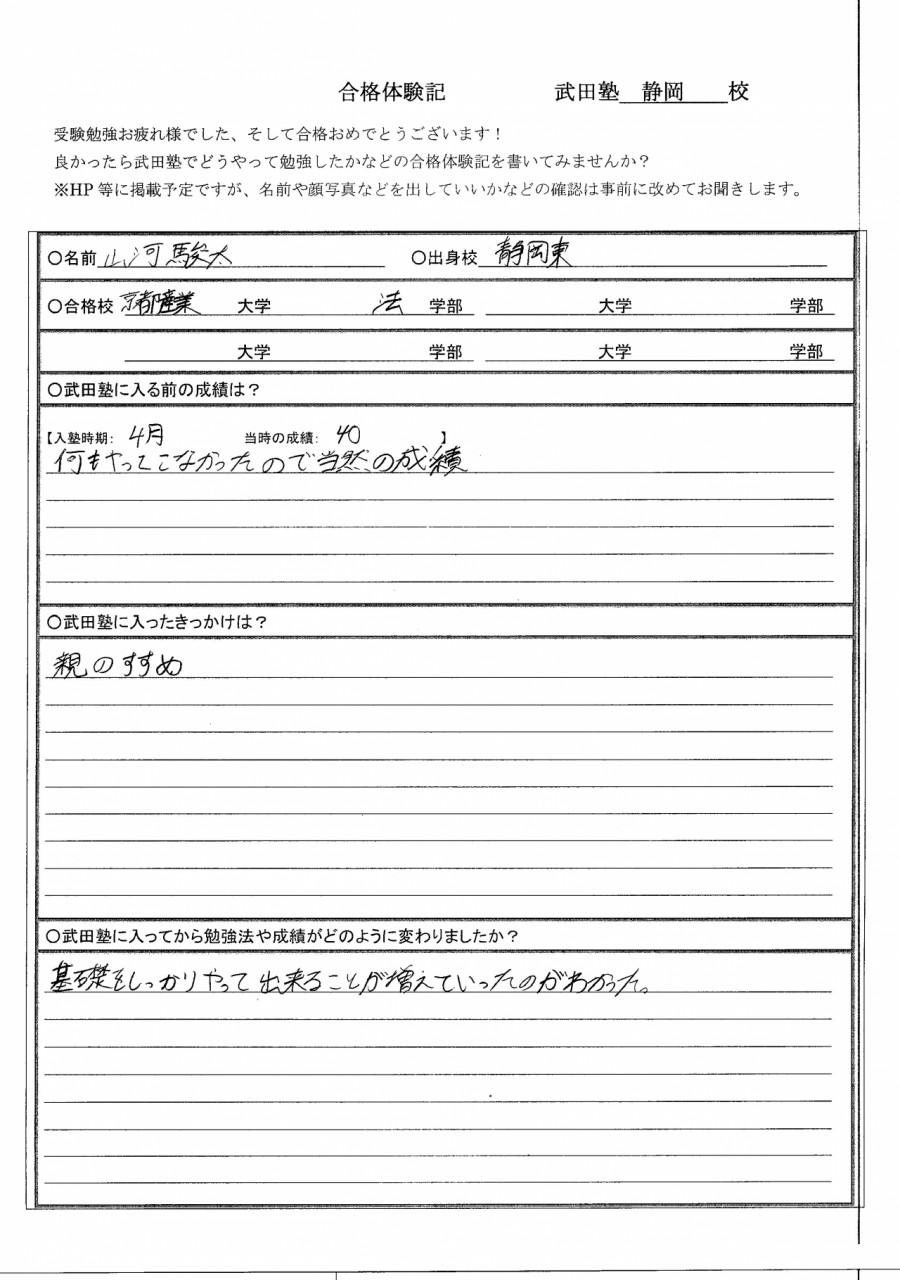 合格体験記 武田塾 静岡 校
受験勉強お疲れ様でした、そして合格おめでとうございます！
良かったら武田塾でどうやって勉強したかなどの合格体験記を書いてみませんか？
※HP 等に掲載予定ですが、名前や顔写真などを出していいかなどの確認は事前に改めてお聞きします。
○名前 山河駿太 ○出身校 静岡東
○合格校 京都産業 大学 法 学部 大学 学部
大学 学部 大学 学部
○武田塾に入る前の成績は？
【入塾時期： 4月 当時の成績： 40 】
何もやってこなかったので当然の成績
○武田塾に入ったきっかけは？
親のすすめ
○武田塾に入ってから勉強法や成績がどのように変わりましたか？
基礎をしっかりやって出来ることが増えていったのがわかった。